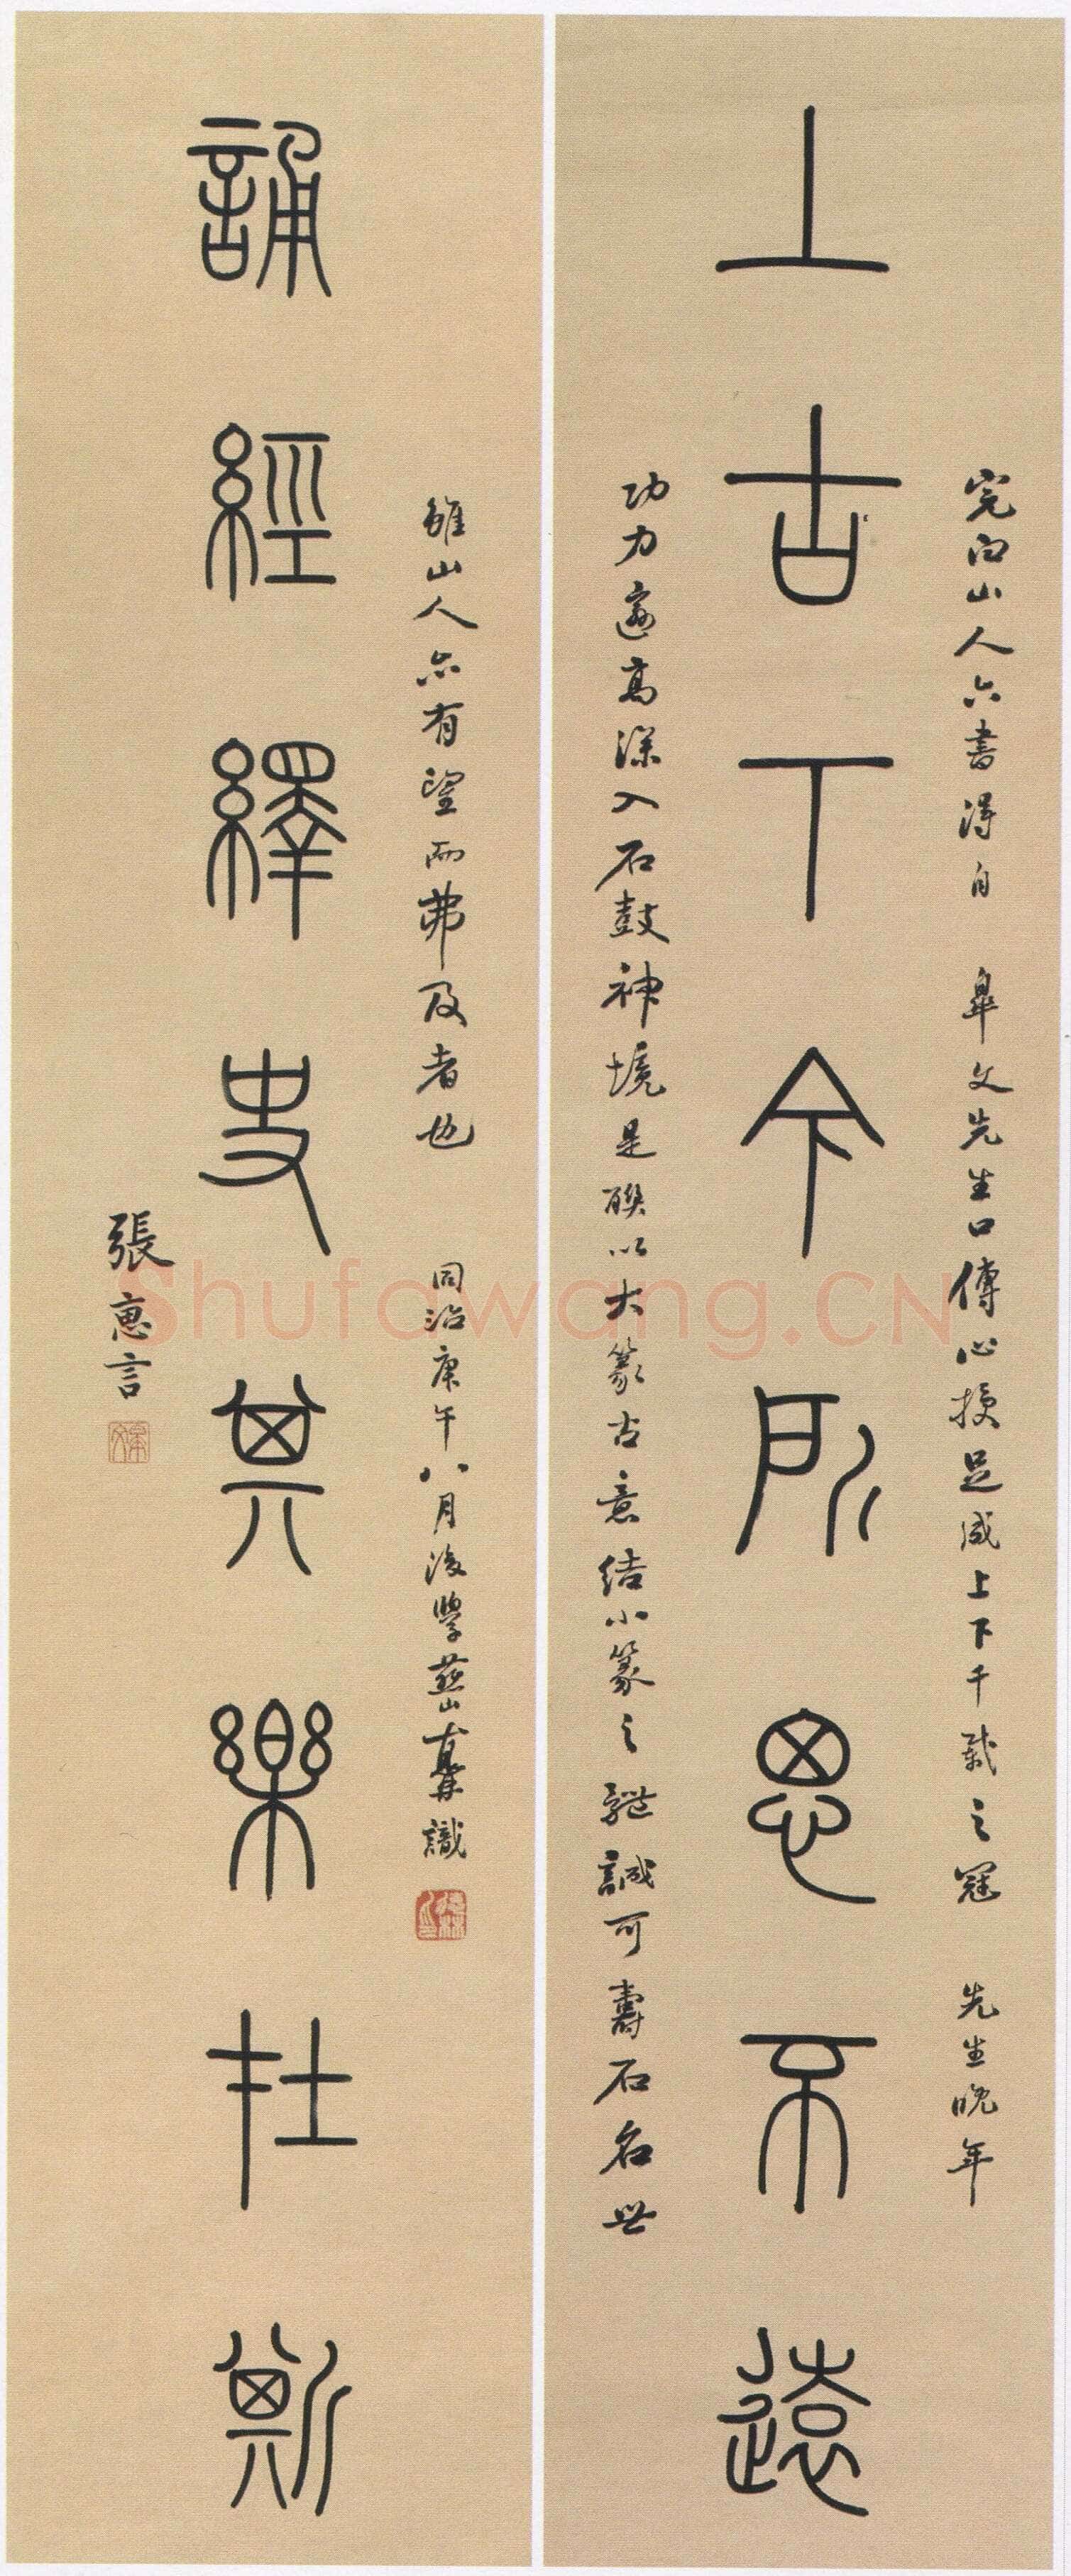 完白山人六書得自 皋文先生口傳心授足成上下千載之冠 先生晚年
上古丁今所思不遠
功力邃高深入石鼓神境是聯以大篆古意結小篆之體誠可壽石名世
雖山人亦有望而弗及者也 同治庚午八月後學 識
誦經繹史其樂在斯
張惠言
Shufawang.CN